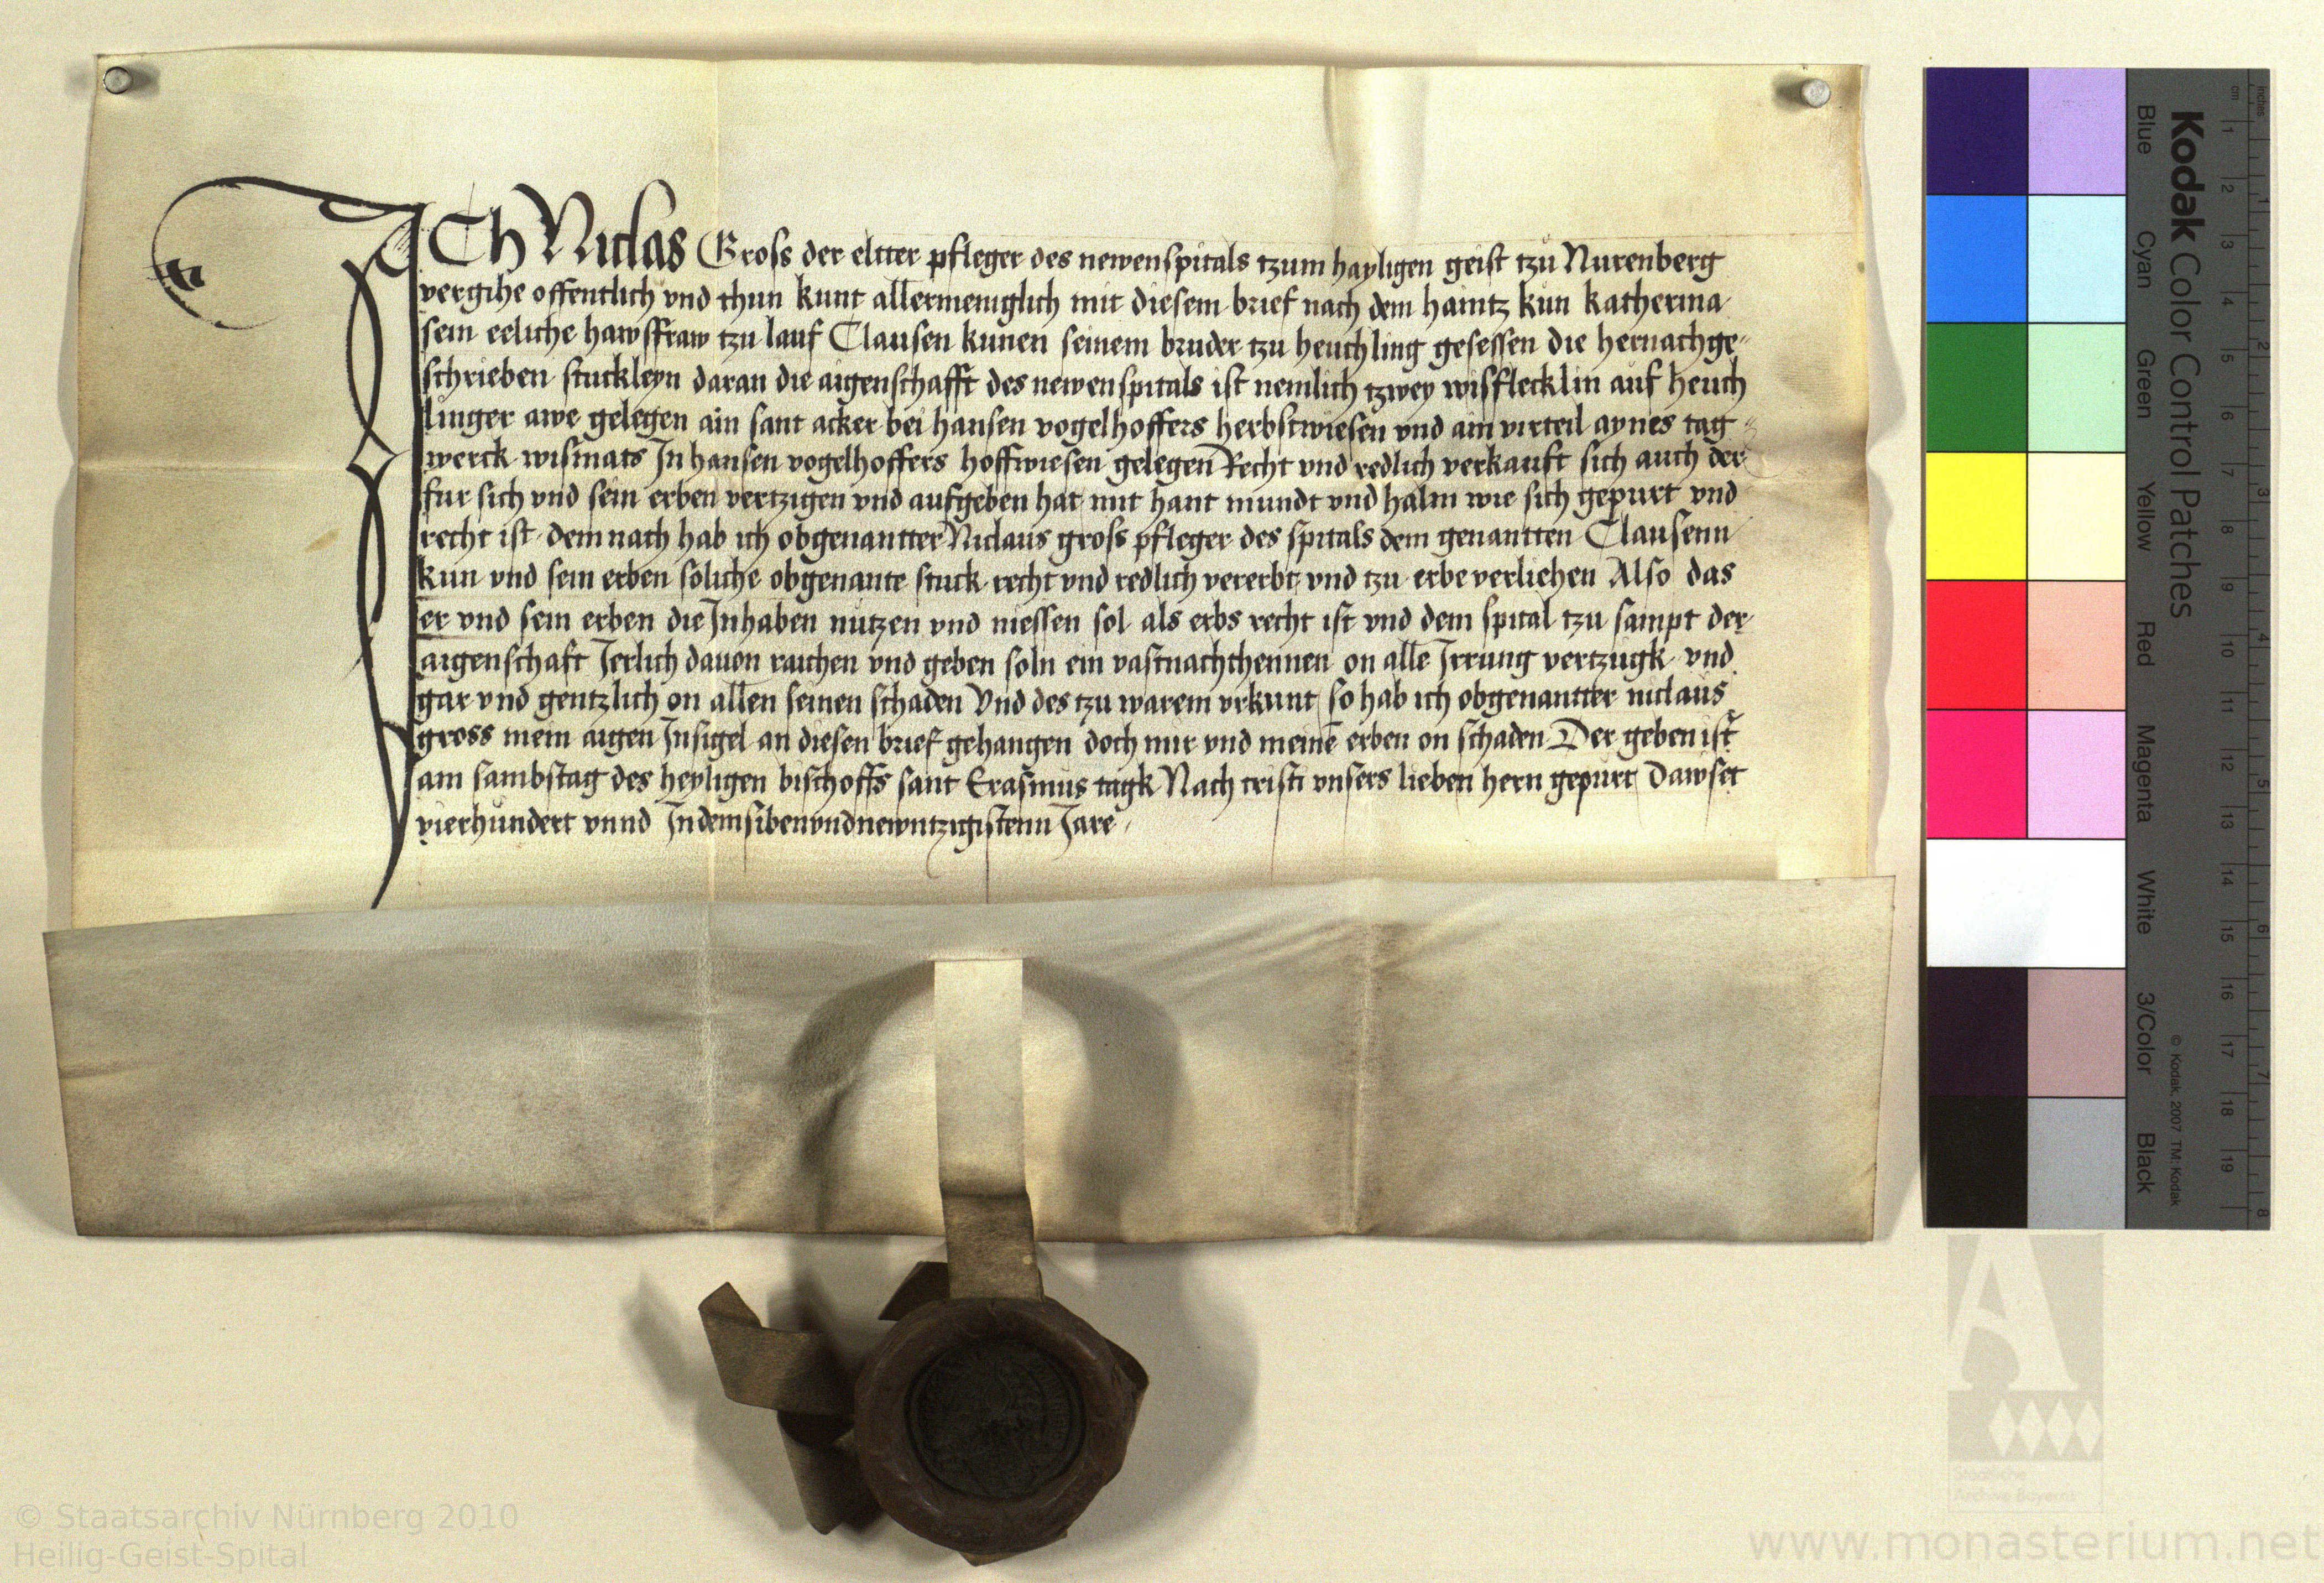 ICh Niclas Gross der eltter pfleger des newenspitals tzum hayligen geist tzu Nurenberg
vergihe offentlich vnd thun kunt allermeniglich mit diesem brief nach dem haintz kun katherina
sein eeliche hawsfraw tzu lauf Clausen kunen seinem bruder tzu heuchling gesessen die hernachge-
schrieben stuckleyn daran die aigenschafft des newenspitals ist nemlich tzwey wisflecklin auf heuch
linger awe gelegen ain sant acker bei hansen vogelhoffers herbstwiesen vnd ain virteil aynes tag-
werck wismats In hansen vogelhoffers hoffwiesen gelegen Recht vnd redlich verkauft sich auch der
fur sich vnd sein erben vertzigen vnd aufgeben hat mit hant mundt vnd halm wie sich gepurt vnd
recht ist demnach hab ich obgenantter Niclaus gross pfleger des spitals dem genantten Clausenn
kun vnd sein erben soliche obgenante stuck recht vnd redlich vererbt vnd tzu erbe verliehen Also das
er vnd sein erben die Inhaben nutzen vnd niessen sol als erbs recht ist vnd dem spital tzu sampt der
aigenschaft Jerlich dauon raichen vnd geben soln ein vastnachthennen on alle Irrung vertzugk vnd
gar vnd gentzlich on allen seinen schaden Vnd des tzu warem vrkunt so hab ich obgenantter niclaus
gross mein aigen Insigel an diesen brief gehangen doch mir vnd meinē erben on schaden Der geben ist
am sambstag des heyligen bischoffs sant Erasmus tagk Nach cristi vnsers lieben hern gepurt Dawset
vierhundert vnnd In dem sibenvndnewntzigistenn Jare
Kodak Color Control Patches
Blue Cyan Green Yellow Red Magenta White 3/Color Black
© Kodak, 2007 TM: Kodak
inches 1 2 3 4 5 6 7 8
cm 1 2 3 4 5 6 7 8 9 10 11 12 13 14 15 16 17 18 19
Staatliche
Archive Bayerns
© Staatsarchiv Nürnberg 2010
Heilig-Geist-Spital
www.monasterium.net